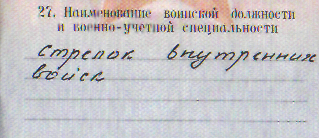 27. Наименование воинской должности
и военно-учетной специальности
стрелок внутренних
войск